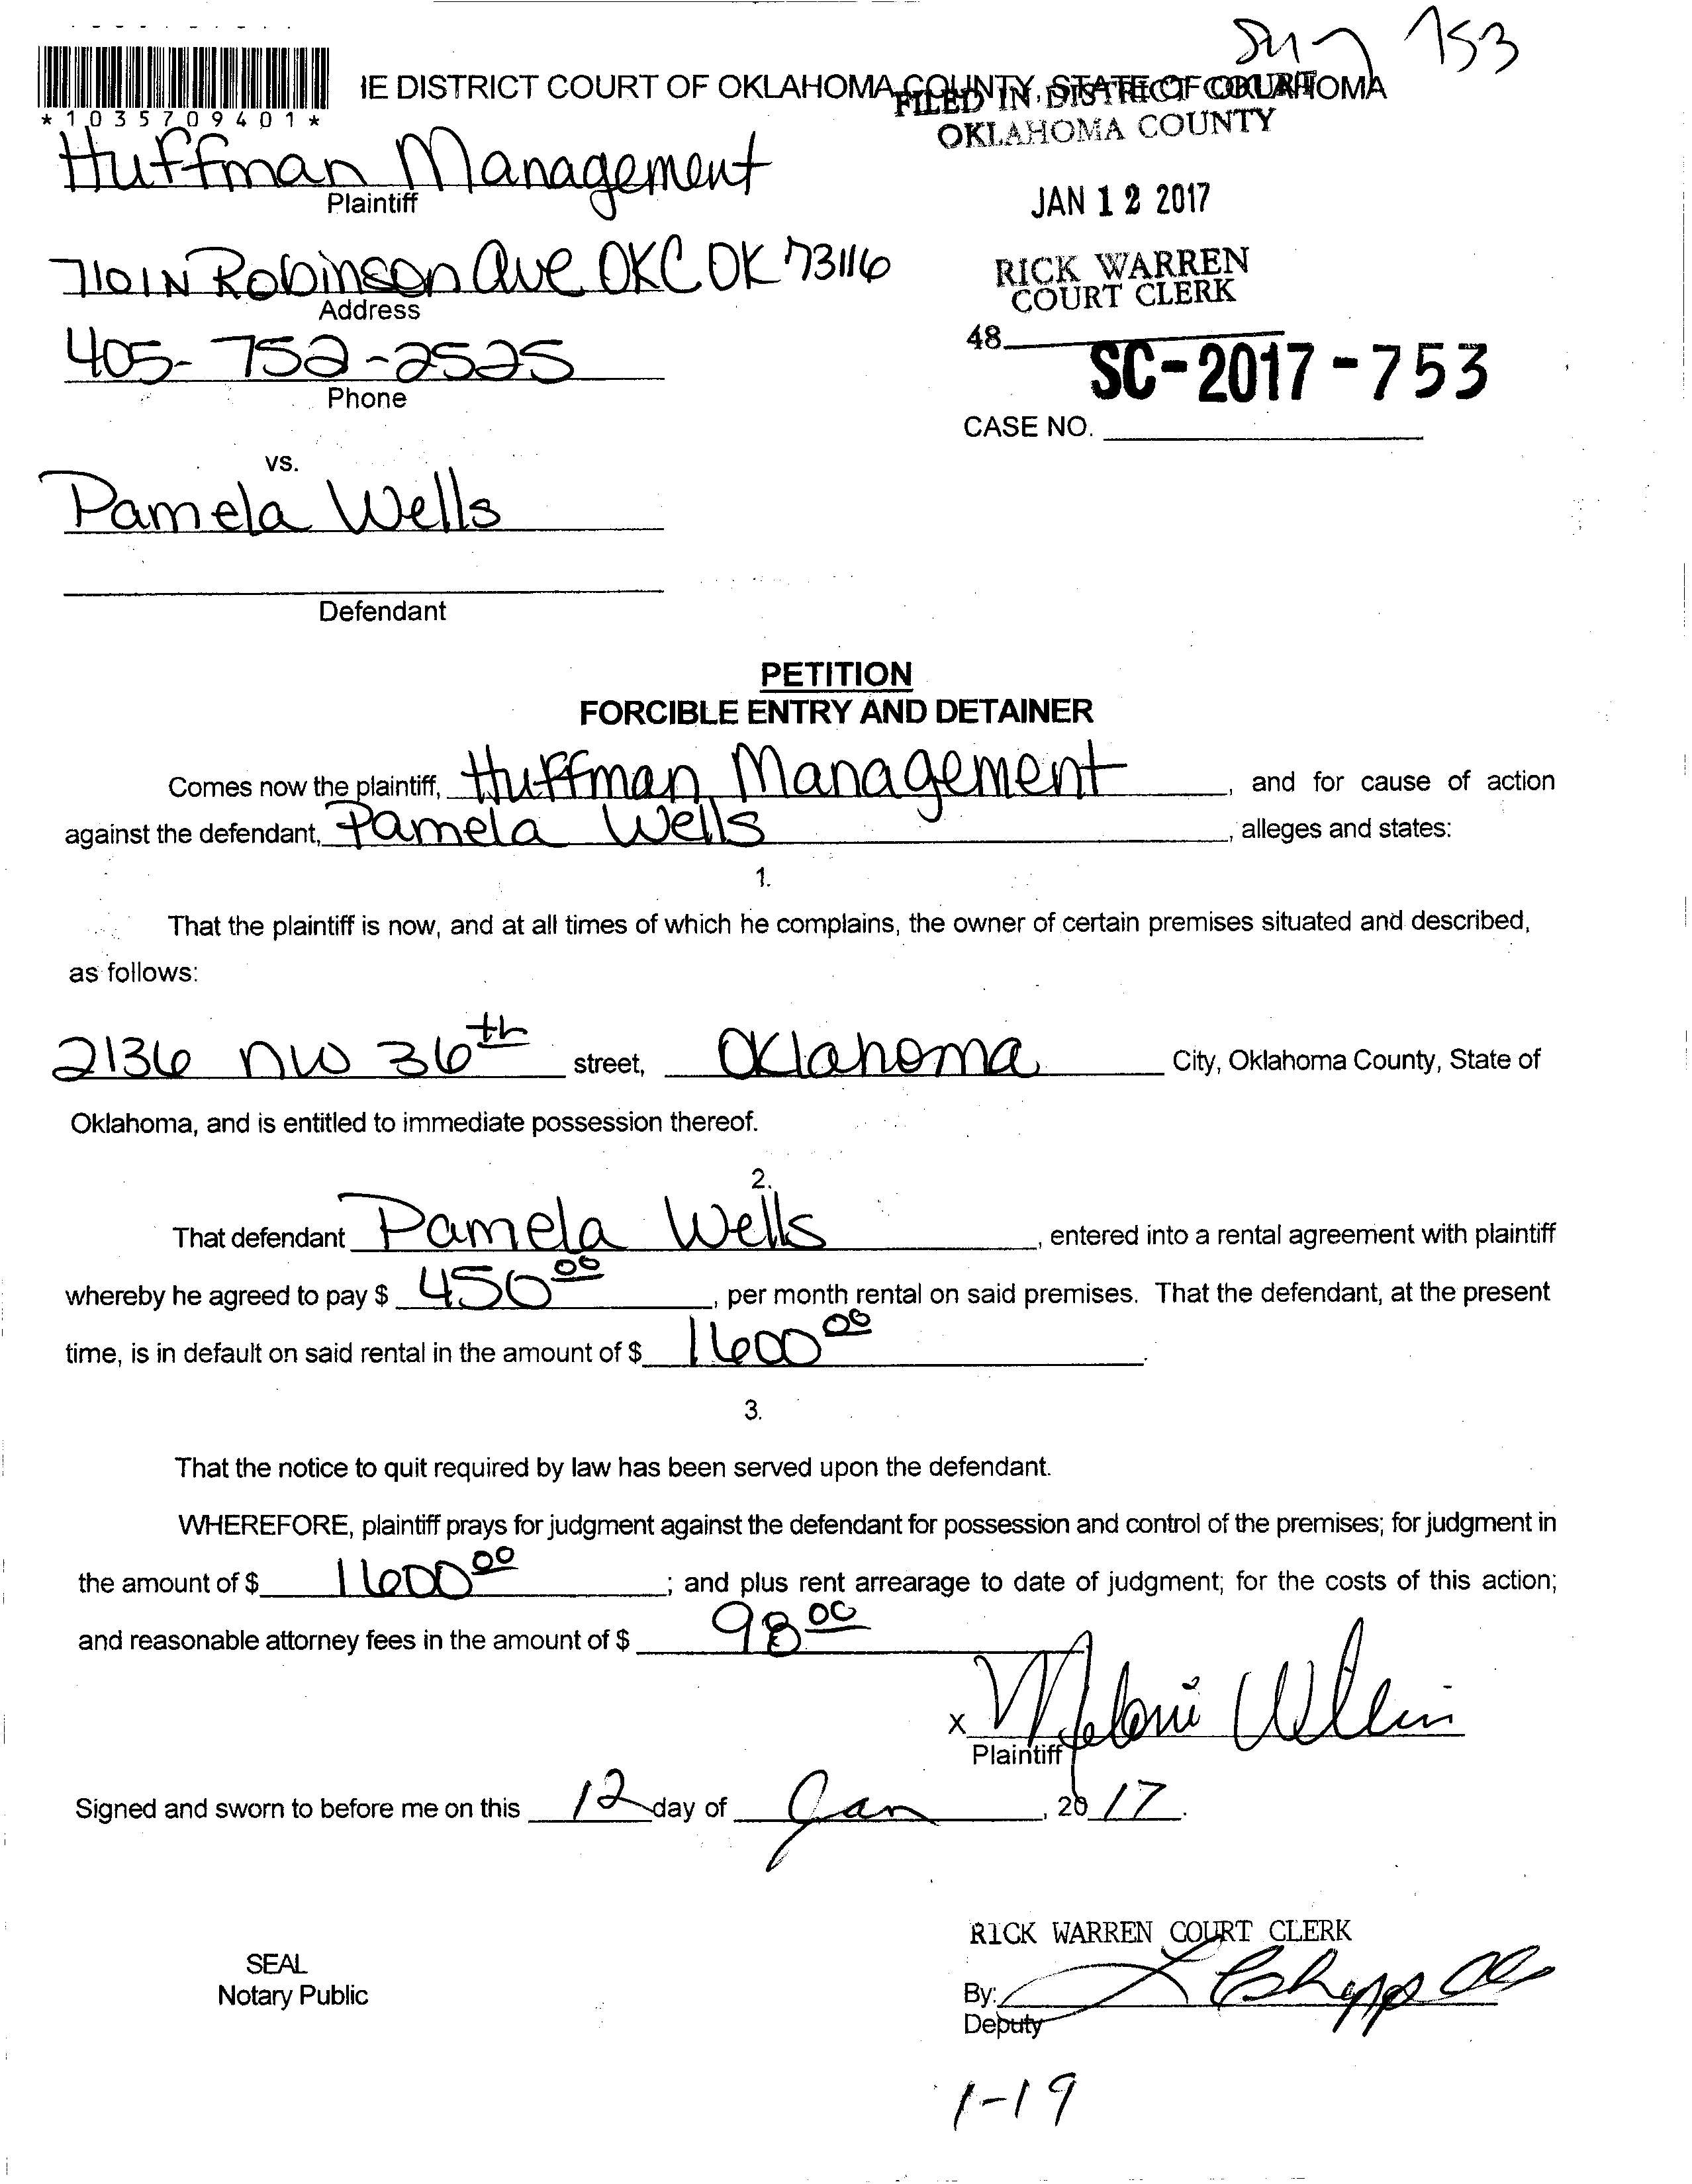 753
IE DISTRICT COURT OF OKLAHOMA COUNTY, STATE OF OKLAHOMA
FILED IN DISTRICT COURT
OKLAHOMA COUNTY
*1035709401*
Huffman Management
Plaintiff
JAN 12 2017
7101 N Robinson Ave OKC OK 73116
Address
RICK WARREN
COURT CLERK
405-752-2525
Phone
48
SC-2017-753
CASE NO.
vs.
Pamela Wells
Defendant
PETITION
FORCIBLE ENTRY AND DETAINER
Comes now the plaintiff, Huffman Management, and for cause of action
against the defendant, Pamela Wells, alleges and states:
1.
That the plaintiff is now, and at all times of which he complains, the owner of certain premises situated and described,
as follows:
2136 NW 36th street, Oklahoma City, Oklahoma County, State of
Oklahoma, and is entitled to immediate possession thereof.
2.
That defendant Pamela Wells, entered into a rental agreement with plaintiff
whereby he agreed to pay $ 450 00, per month rental on said premises. That the defendant, at the present
time, is in default on said rental in the amount of $ 1600 00.
3.
That the notice to quit required by law has been served upon the defendant.
WHEREFORE, plaintiff prays for judgment against the defendant for possession and control of the premises; for judgment in
the amount of $ 1600 00; and plus rent arrearage to date of judgment; for the costs of this action;
and reasonable attorney fees in the amount of $ 98 00
x
Plaintiff
Signed and sworn to before me on this 12 day of Jan, 20 17.
RICK WARREN COURT CLERK
SEAL
Notary Public
By:
Deputy
1-19